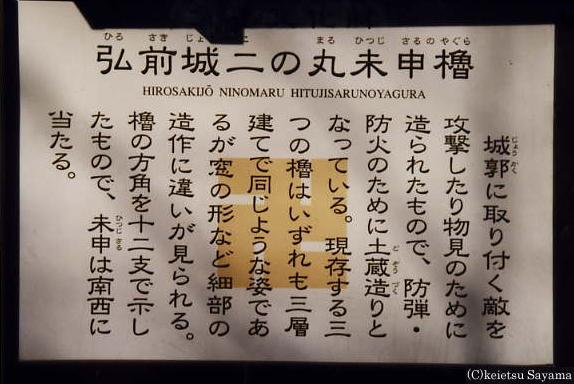 弘前城二の丸未申櫓
HIROSAKIJŌ NINOMARU HITUJISARUNOYAGURA
城郭に取り付く敵を
攻撃したり物見のために
造られたもので、防弾・
防火のために土蔵造りと
なっている。現存する三
つの櫓はいずれも三層
建てで同じような姿であ
るが窓の形など細部の
造作に違いが見られる。
櫓の方角を十二支で示し
たもので、未申は南西に
当たる。
(C)keietsu Sayama